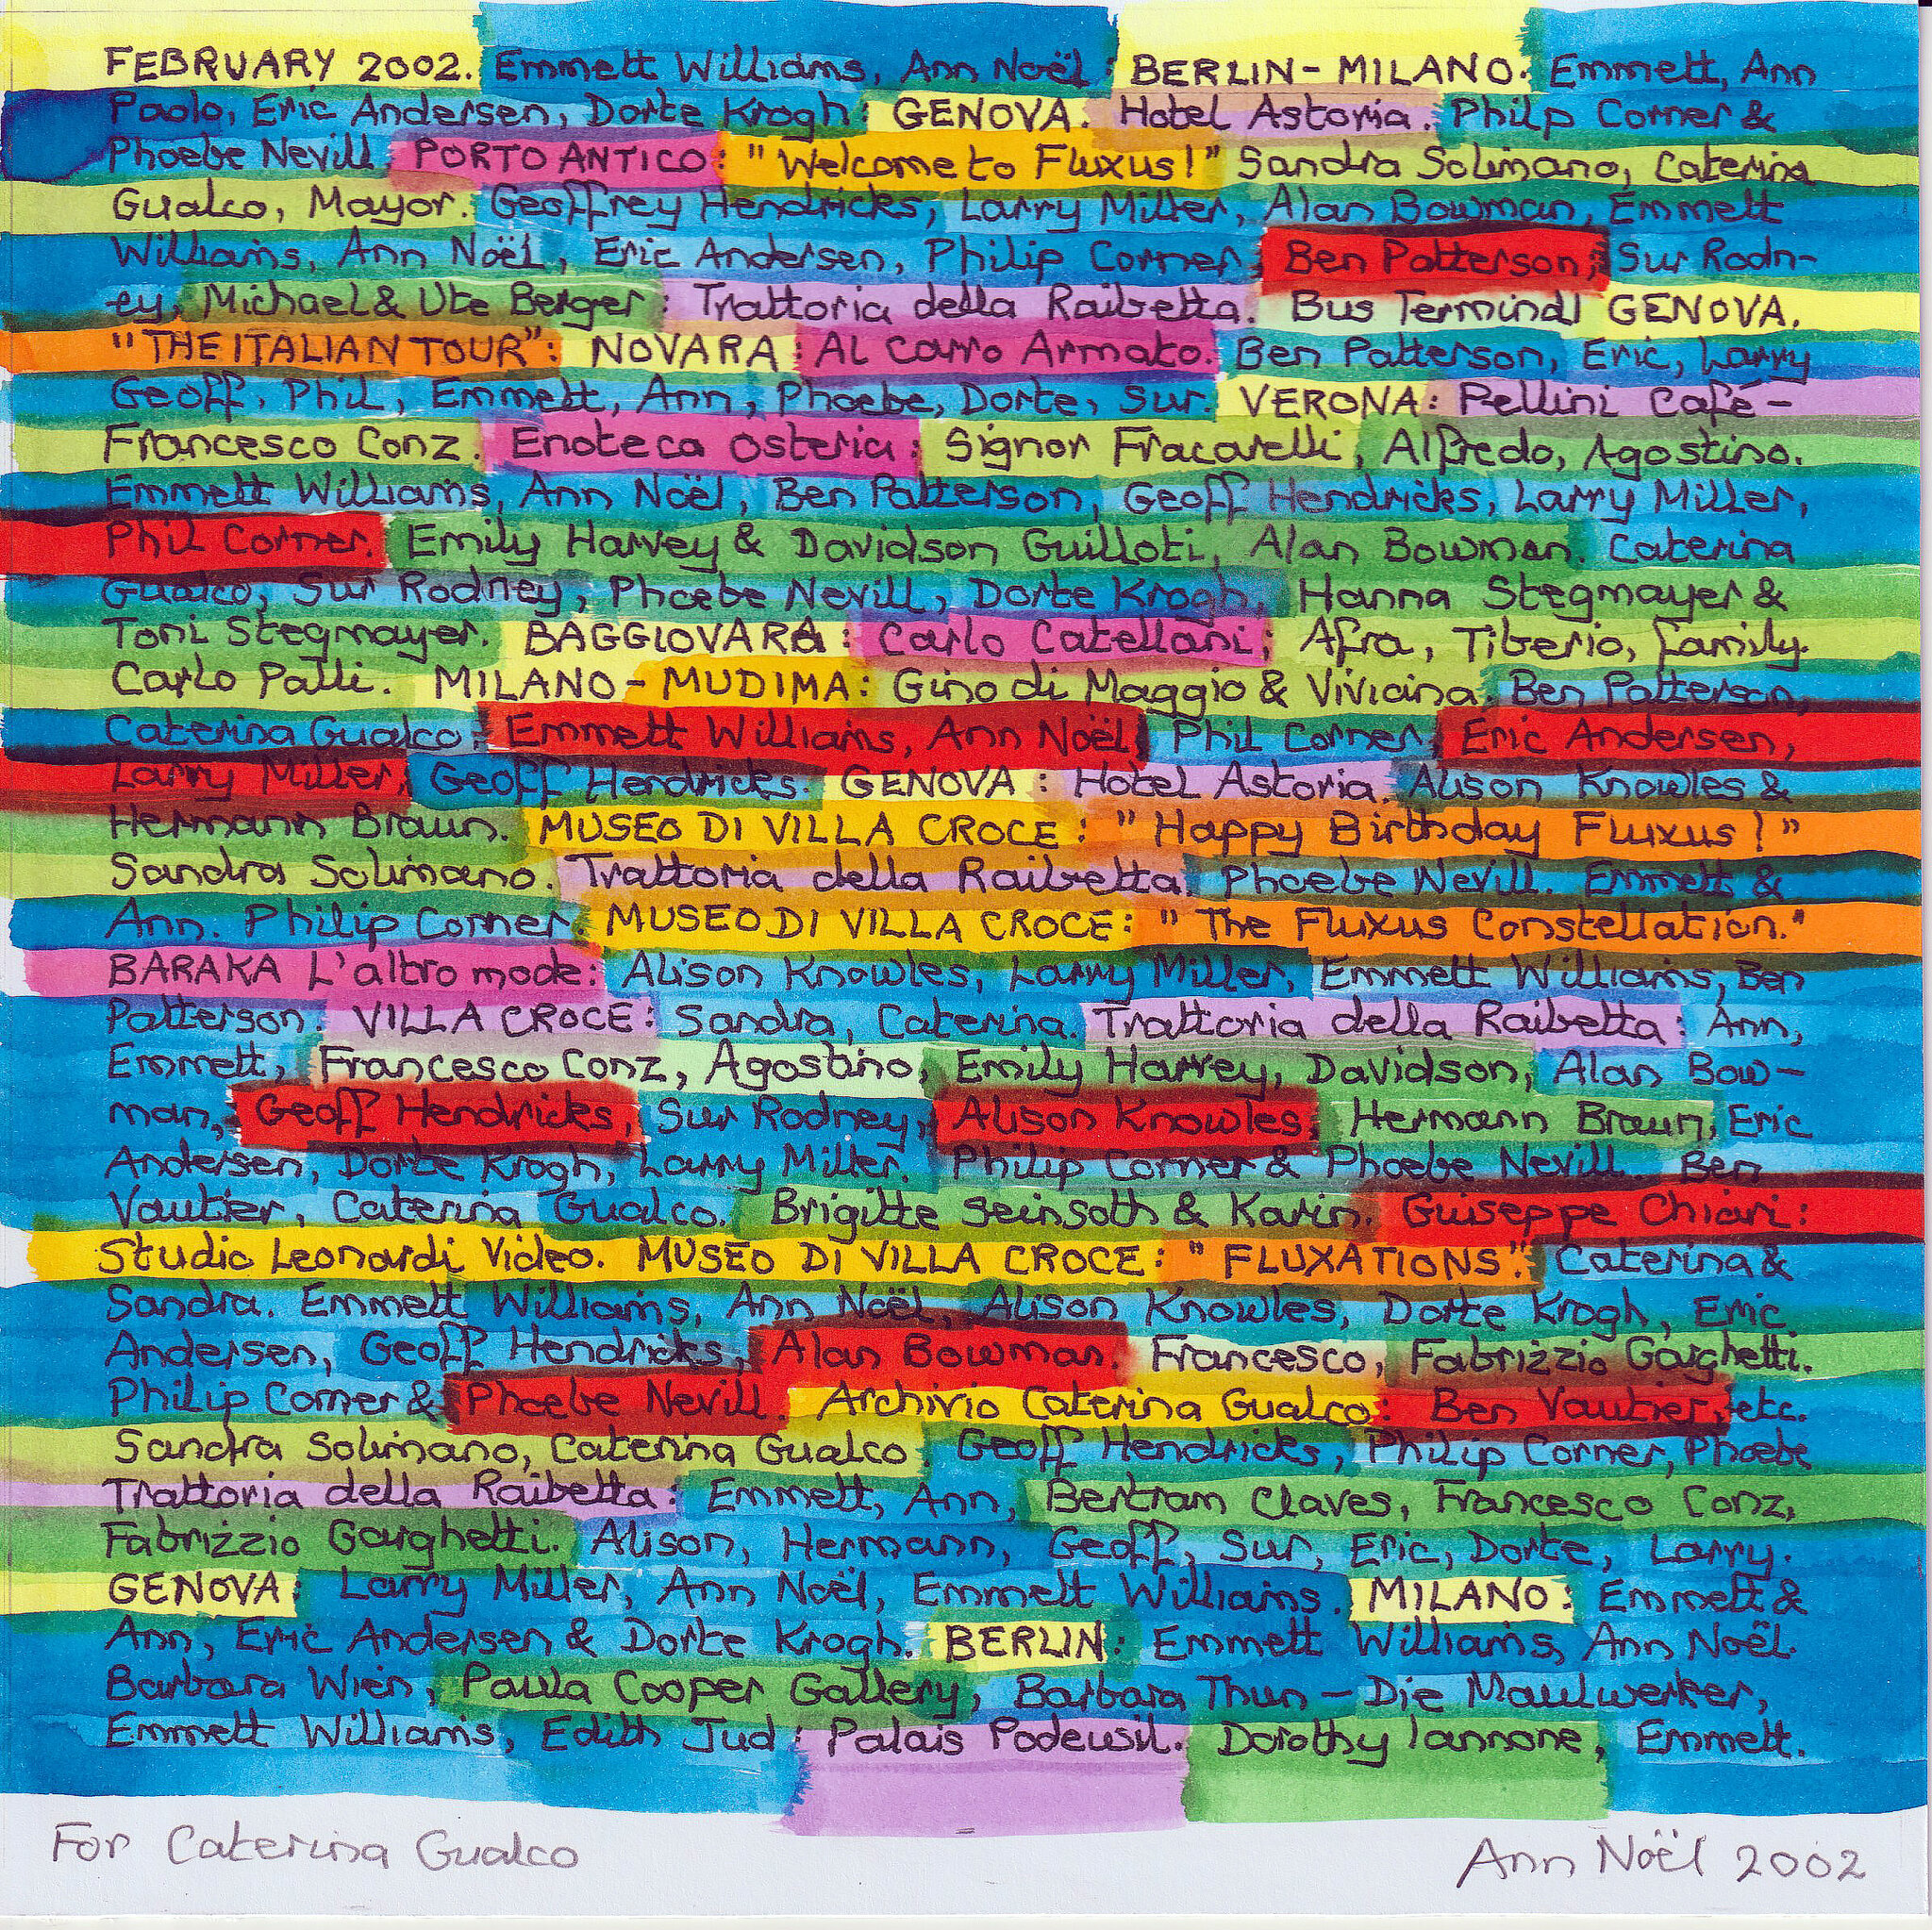 FEBRUARY 2002. Emmett Williams, Ann Noël: BERLIN - MILANO. Emmett, Ann
Paolo, Eric Andersen, Dorte Krogh: GENOVA. Hotel Astoria. Philp Corner &
Phoebe Nevill. PORTO ANTICO: "Welcome to Fluxus!" Sandra Solimano, Caterina
Gualco, Mayor. Geoffrey Hendricks, Larry Miller, Alan Bowman, Emmett
Williams, Ann Noël, Eric Andersen, Philip Corner, Ben Patterson, Sur Rodn-
ey, Michael & Ute Berger: Trattoria della Raibetta. Bus Terminal GENOVA.
"THE ITALIAN TOUR": NOVARA: Al Carro Armato. Ben Patterson, Eric, Larry
Geoff, Phil, Emmett, Ann, Phoebe, Dorte, Sur. VERONA: Pellini Café-
Francesco Conz. Enoteca Osteria: Signor Fracarelli, Alfredo, Agostino.
Emmett Williams, Ann Noël, Ben Patterson, Geoff Hendricks, Larry Miller,
Phil Corner. Emily Harvey & Davidson Guilloti, Alan Bowman. Caterina
Gualco, Sur Rodney, Phoebe Nevill, Dorte Krogh. Hanna Stegmayer &
Toni Stegmayer. BAGGIOVARA: Carlo Catellani; Afra, Tiberio, family.
Carlo Palli. MILANO - MUDIMA: Gino di Maggio & Viviana. Ben Patterson,
Caterina Gualco, Emmett Williams, Ann Noël, Phil Corner, Eric Andersen,
Larry Miller, Geoff Hendricks. GENOVA: Hotel Astoria. Alison Knowles &
Hermann Braun. MUSEO DI VILLA CROCE: "Happy Birthday Fluxus!"
Sandra Solimano. Trattoria della Raibetta. Phoebe Nevill. Emmett &
Ann. Philip Corner. MUSEO DI VILLA CROCE: "The Fluxus Constellation."
BARAKA L'altro mode: Alison Knowles, Larry Miller, Emmett Williams, Ben
Patterson. VILLA CROCE: Sandra, Caterina. Trattoria della Raibetta: Ann,
Emmett, Francesco Conz, Agostino, Emily Harvey, Davidson, Alan Bow-
man, Geoff Hendricks, Sur Rodney, Alison Knowles, Hermann Braun, Eric
Andersen, Dorte Krogh, Larry Miller. Philip Corner & Phoebe Nevill. Ben
Vautier, Caterina Gualco. Brigitte Seinsoth & Karin. Guiseppe Chiari:
Studio Leonardi Video. MUSEO DI VILLA CROCE: "FLUXATIONS". Caterina &
Sandra. Emmett Williams, Ann Noël, Alison Knowles, Dorte Krogh, Eric
Andersen, Geoff Hendricks, Alan Bowman. Francesco, Fabrizzio Garghetti.
Philip Corner & Phoebe Nevill. Archivio Caterina Gualco: Ben Vautier, etc.
Sandra Solimano, Caterina Gualco. Geoff Hendricks, Philip Corner, Phoebe
Trattoria della Raibetta: Emmett, Ann, Bertram Claves, Francesco Conz,
Fabrizzio Garghetti. Alison, Hermann, Geoff, Sur, Eric, Dorte, Larry.
GENOVA: Larry Miller, Ann Noël, Emmett Williams. MILANO: Emmett &
Ann, Eric Andersen & Dorte Krogh. BERLIN: Emmett Williams, Ann Noël.
Barbara Wien, Paula Cooper Gallery, Barbara Thun - Die Maulwerker,
Emmett Williams, Edith Jud: Palais Podewsil. Dorothy Iannone, Emmett.
For Caterina Gualco
Ann Noël 2002